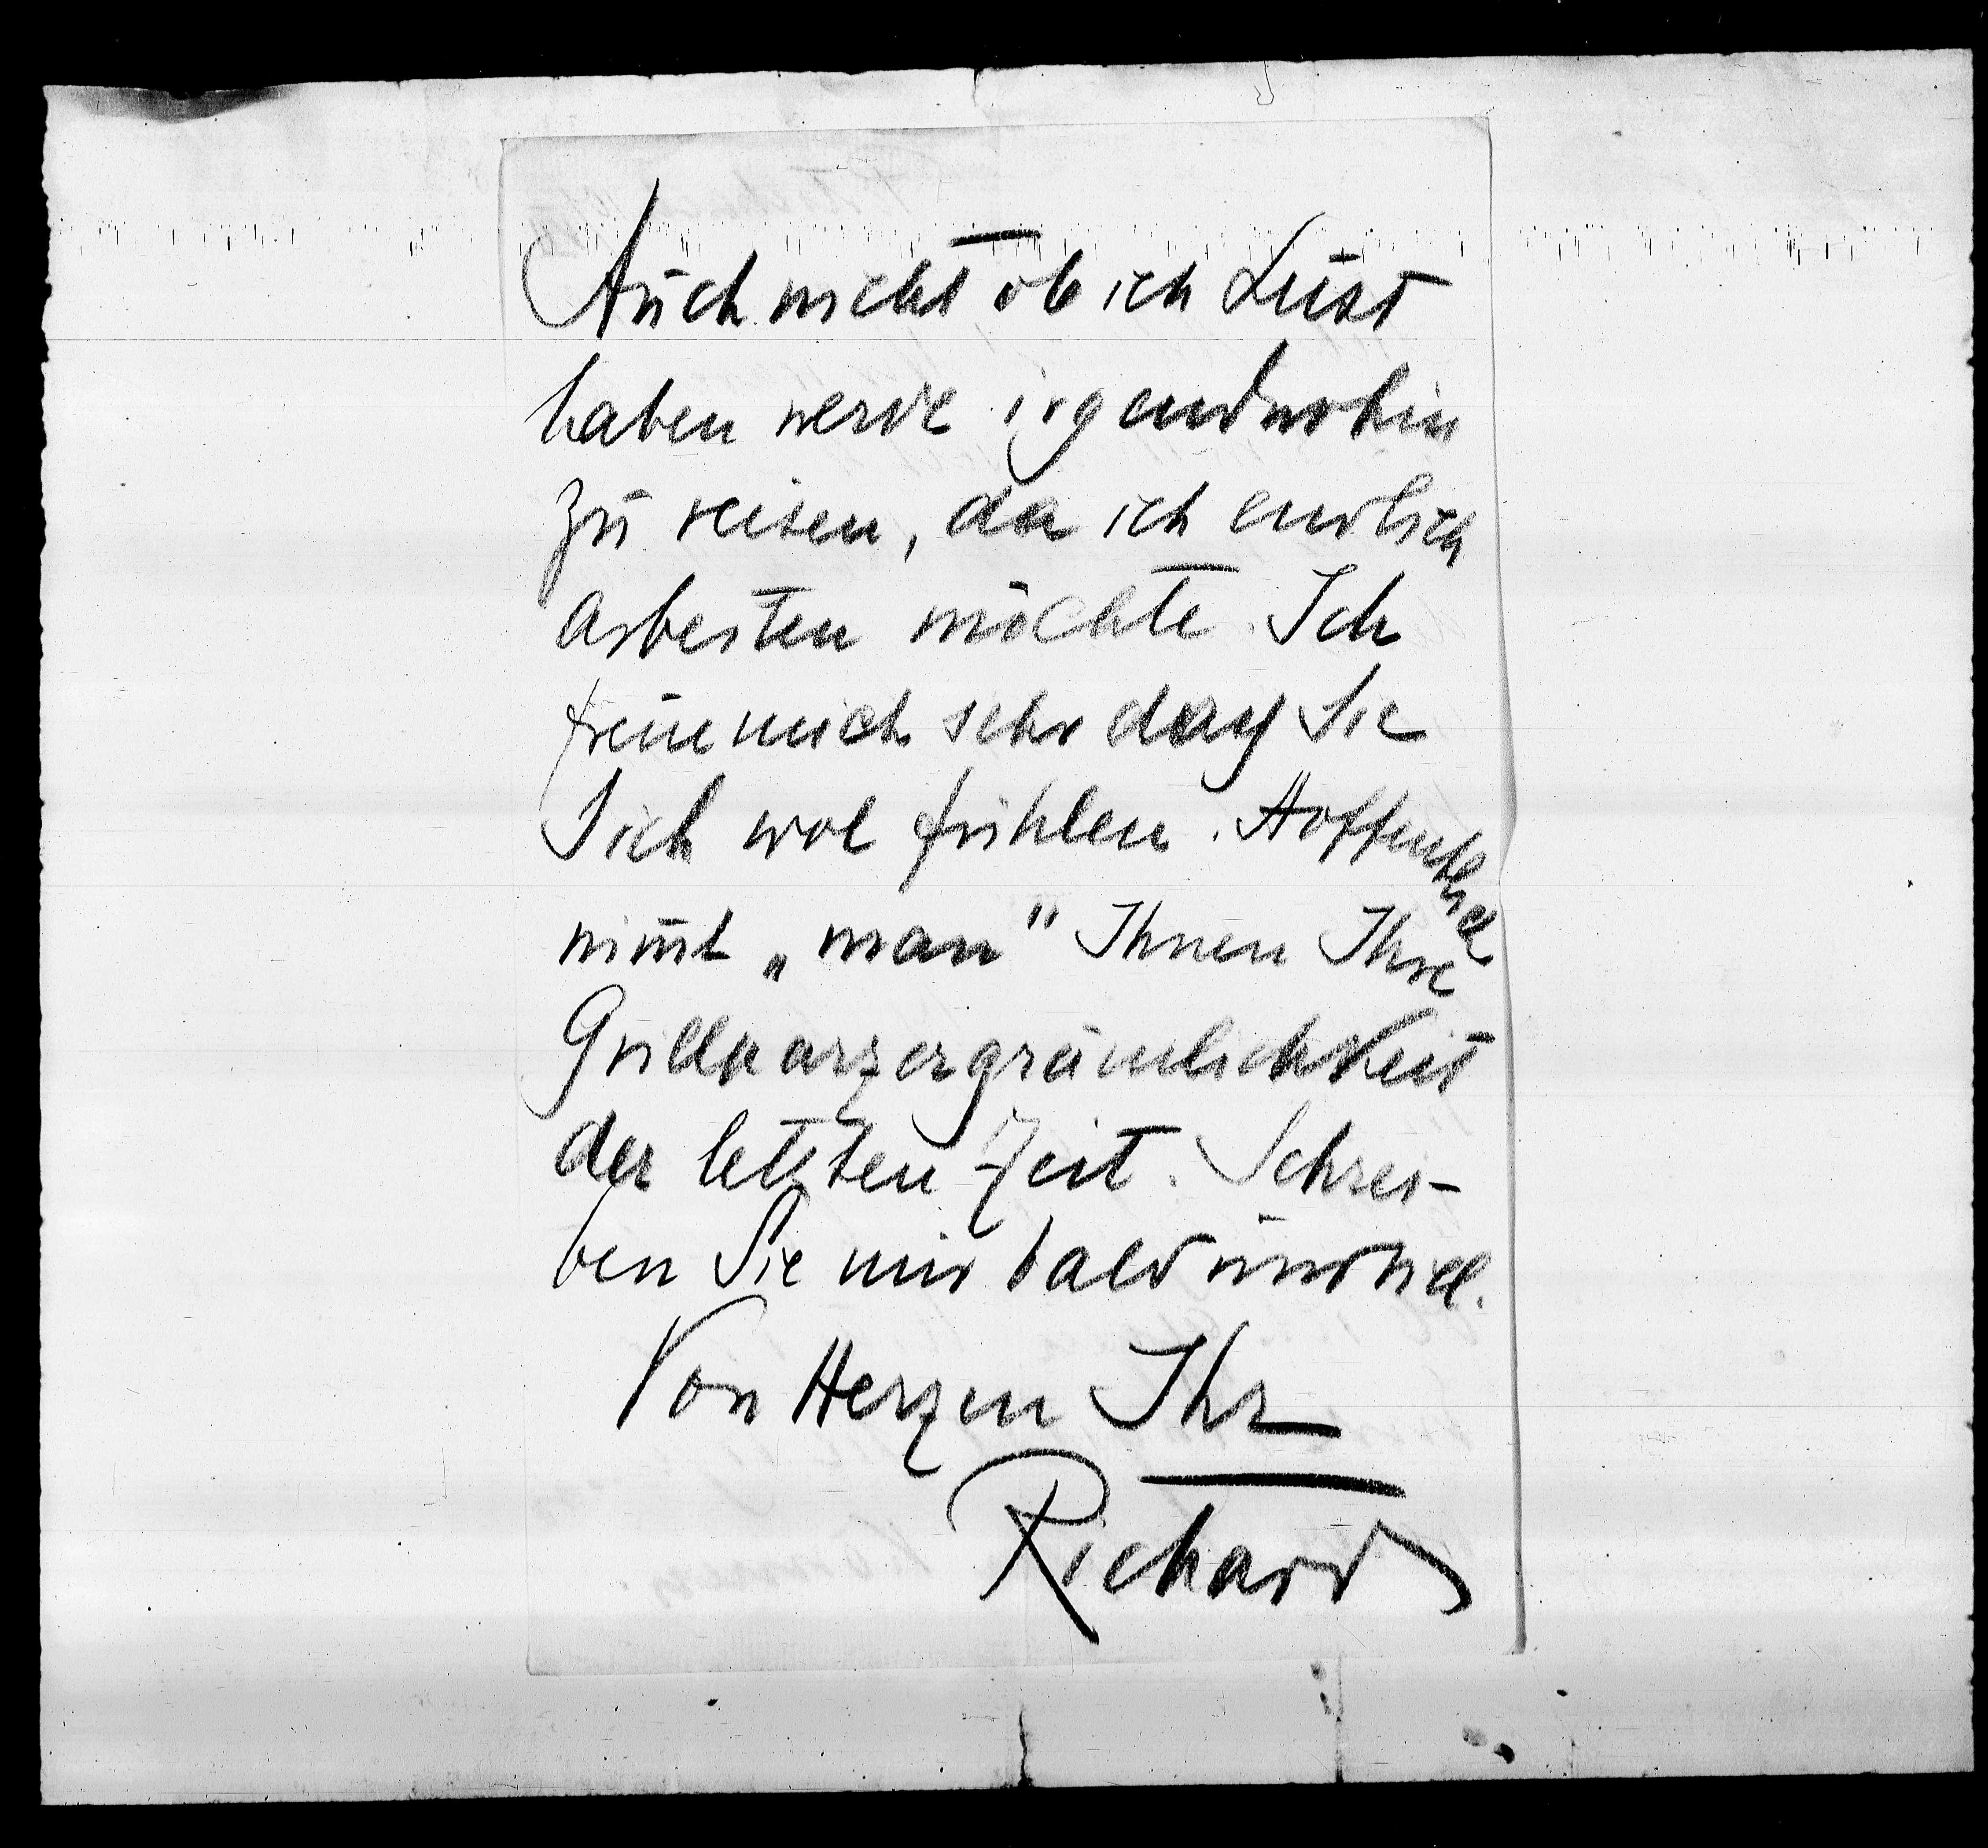 Auch nicht ob ich Lust
haben werde irgendwohin
zu reisen, da ich endlich
arbeiten möchte. Ich
freue mich sehr dass Sie
Sich wol fühlen. Hoffentlich
nim̅t „man" Ihnen Ihre
Grillparzergrämlichkeit
der letzten Zeit. Schrei-
ben Sie mir bald und viel.
Von Herzen Ihr
Richard